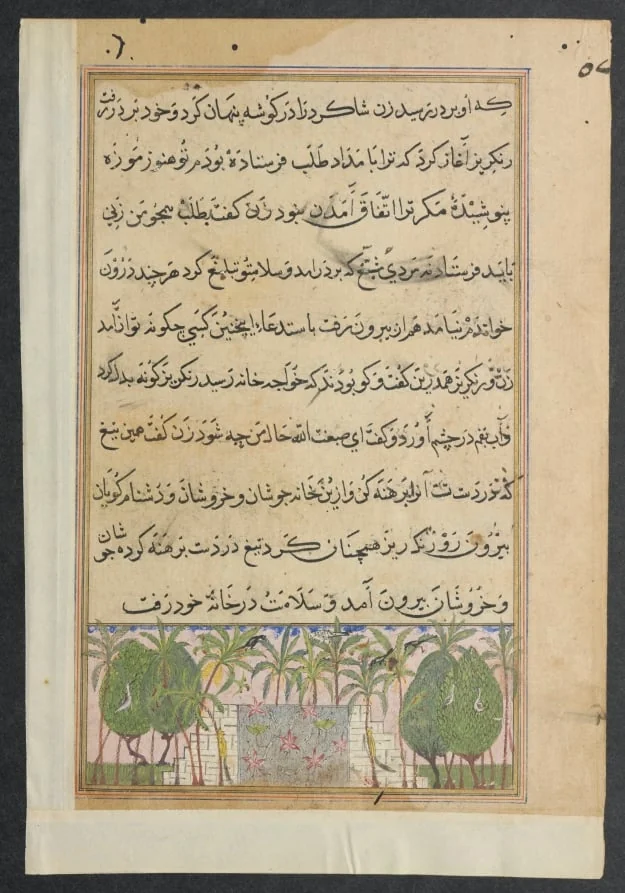 که او بر در رسید زن شاکرد را در کوشه پنهان کرد و خود بر در رفت
رنکریز آغاز کرد که ترا بامداد طلب فرستاده بودم تو هنوز موزه
پوشیدهٔ مکر ترا اتفاق آمدن نبود زن کفت بطلب همجو من زنی
باید فرستاد نه مردی تیغ که بر در آمد و سلام تو تبلیغ کرد هر چند درون
خواندم نیامد هم از بیرون رفت باستدعاء اینجنین کسی جکونه توان آمد
زن و رنکریز همدرین کفت و کو بودند که خواجه خانه رسید رنکریز کونه بدل کرد
و آب بقم در چشم آورد و کفت ای صبغت الله حال من چه شود زن کفت همین تیغ
که در دست تست آنرا برهنه کن و ازین خانه جوشان و خروشان و دشنام کویان
بیرون رو رنکریز همچنان کرد تیغ در دست برهنه کرده جوشان
و خروشان بیرون آمد و سلامت در خانهٔ خود رفت